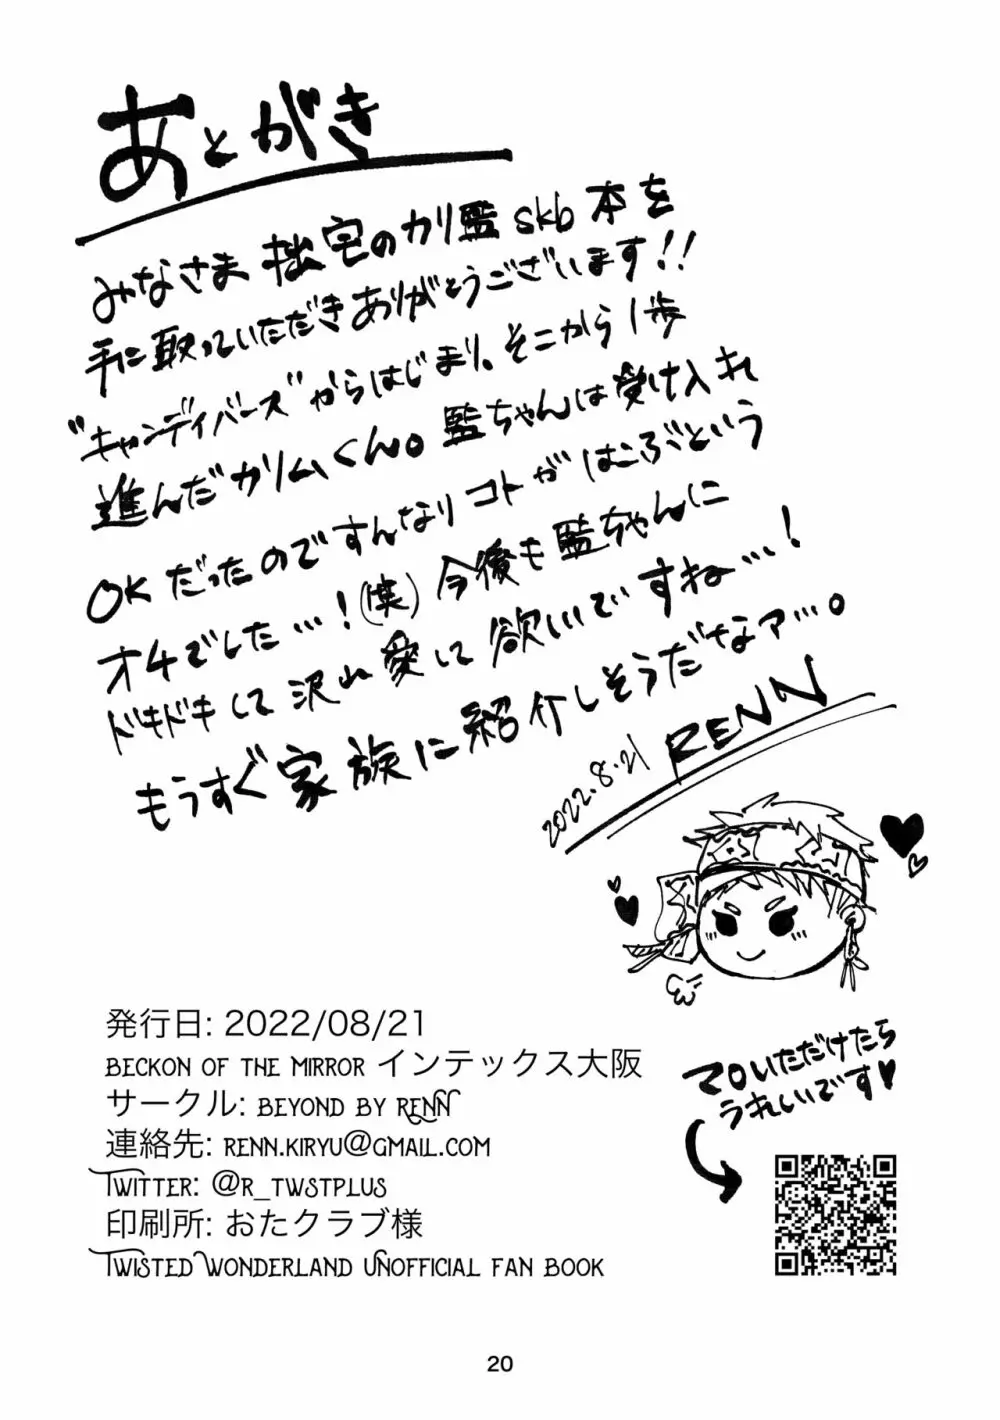 あとがき
みなさま 拙宅のカリ監 skb 本を
手に取っていただきありがとうございます!!
"キャンディバース"からはじまり。そこから1歩
進んだカリムくん。監ちゃんは受け入れ
OKだったのですんなりコトがはこぶという
オチでした…!(笑) 今後も監ちゃんに
ドキドキして沢山愛して欲しいですね…!
もうすぐ家族に紹介しそうだなァ…。
2022.8.21 RENN
発行日: 2022/08/21
BECKON OF THE MIRROR インテックス大阪
サークル: BEYOND BY RENN
連絡先: RENN.KIRYU@GMAIL.COM
TWITTER: @R_TWSTPLUS
印刷所: おたクラブ様
TWISTED WONDERLAND UNOFFICIAL FAN BOOK
マロいただけたら
うれしいです♥
20